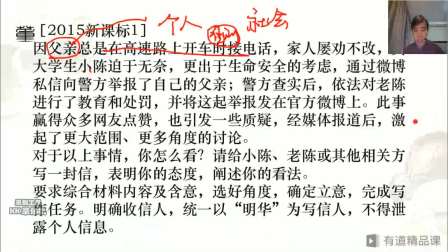 [2015新课标1]
个人
社会
因父亲总是在高速路上开车时接电话，家人屡劝不改，
大学生小陈迫于无奈，更出于生命安全的考虑，通过微博
私信向警方举报了自己的父亲；警方查实后，依法对老陈
进行了教育和处罚，并将这起举报发在官方微博上。此事
赢得众多网友点赞，也引发一些质疑，经媒体报道后，激
起了更大范围、更多角度的讨论。
对于以上事情，你怎么看？请给小陈、老陈或其他相关方
写一封信，表明你的态度，阐述你的看法。
要求综合材料内容及含意，选好角度，确定立意，完成写
任务。明确收信人，统一以“明华”为写信人，不得泄
露个人信息。
有道精品课